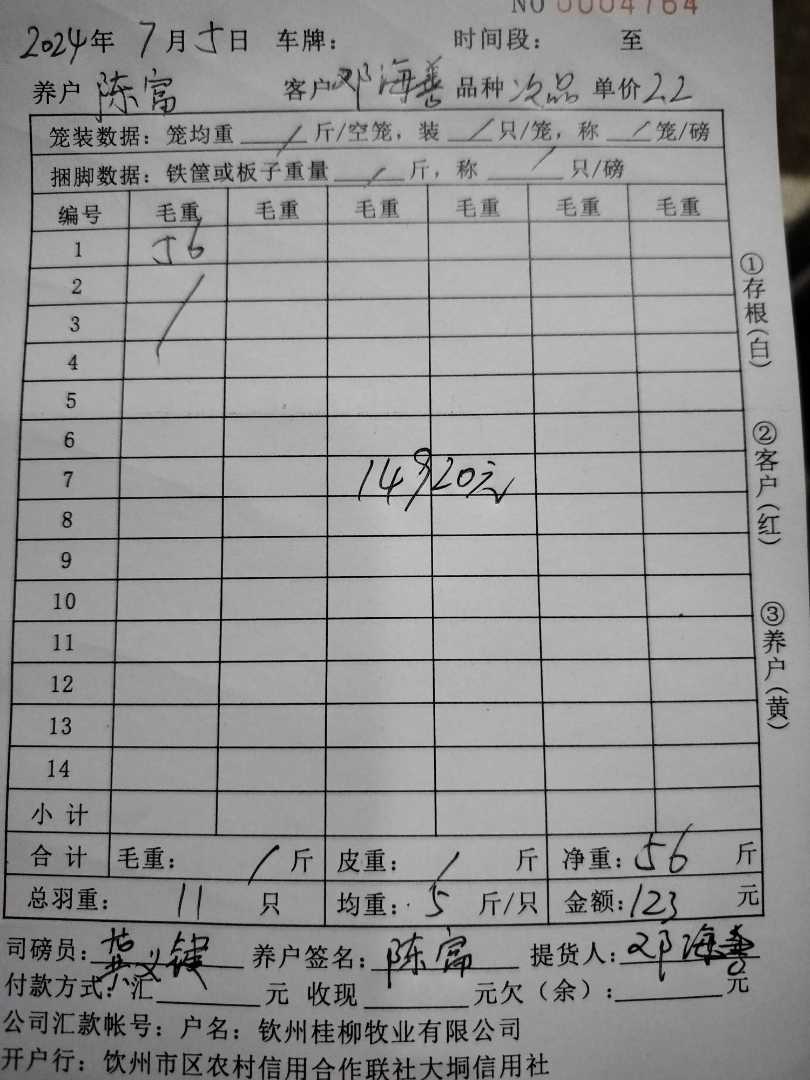 NO 0004764
2024年 7月5日 车牌: 时间段: 至
养户 陈富 客户 邓海善 品种 次品 单价 2.2
笼装数据: 笼均重 / 斤/空笼, 装 / 只/笼, 称 / 笼/磅
捆脚数据: 铁筐或板子重量 / 斤, 称 / 只/磅
编号 毛重 毛重 毛重 毛重 毛重 毛重
1 56
2
3
4
5
6
7 14920元
8
9
10
11
12
13
14
小计
合计 毛重: / 斤 皮重: / 斤 净重: 56 斤
总羽重: 11 只 均重: 5 斤/只 金额: 123 元
司磅员: 黄义键 养户签名: 陈富 提货人: 邓海善
付款方式: 汇 元 收现 元欠(余): 元
公司汇款帐号: 户名: 钦州桂柳牧业有限公司
开户行: 钦州市区农村信用合作联社大垌信用社
①存根(白)
②客户(红)
③养户(黄)